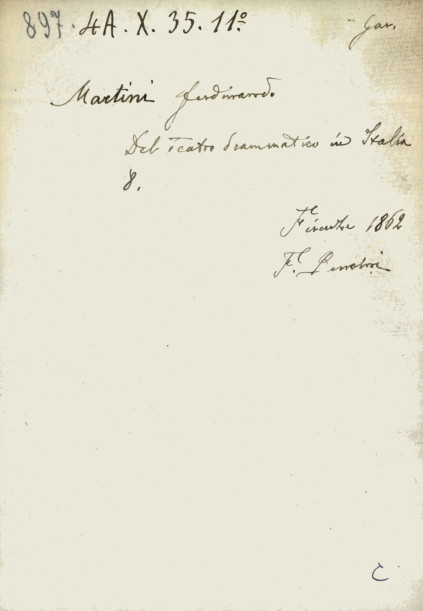 897. 4A. X. 35. 11º
Gar.
Martini Ferdinando
Del Teatro drammatico in Italia
8.
Firenze 1862
F.
C